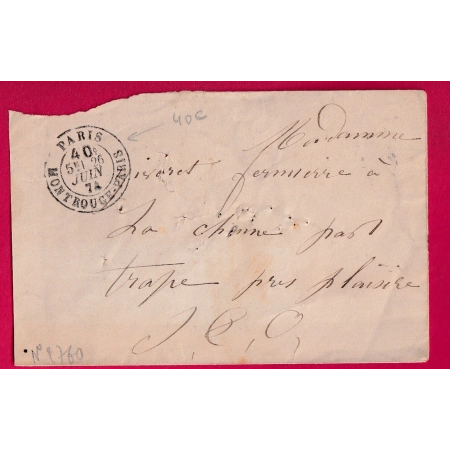 PARIS
40c
5E/ 26
JUIN
74
MONTROUGE-PARIS
40c
Madamme
fermierre à
La chenne part
trape pres plaisire
S. & O.
N° 1760